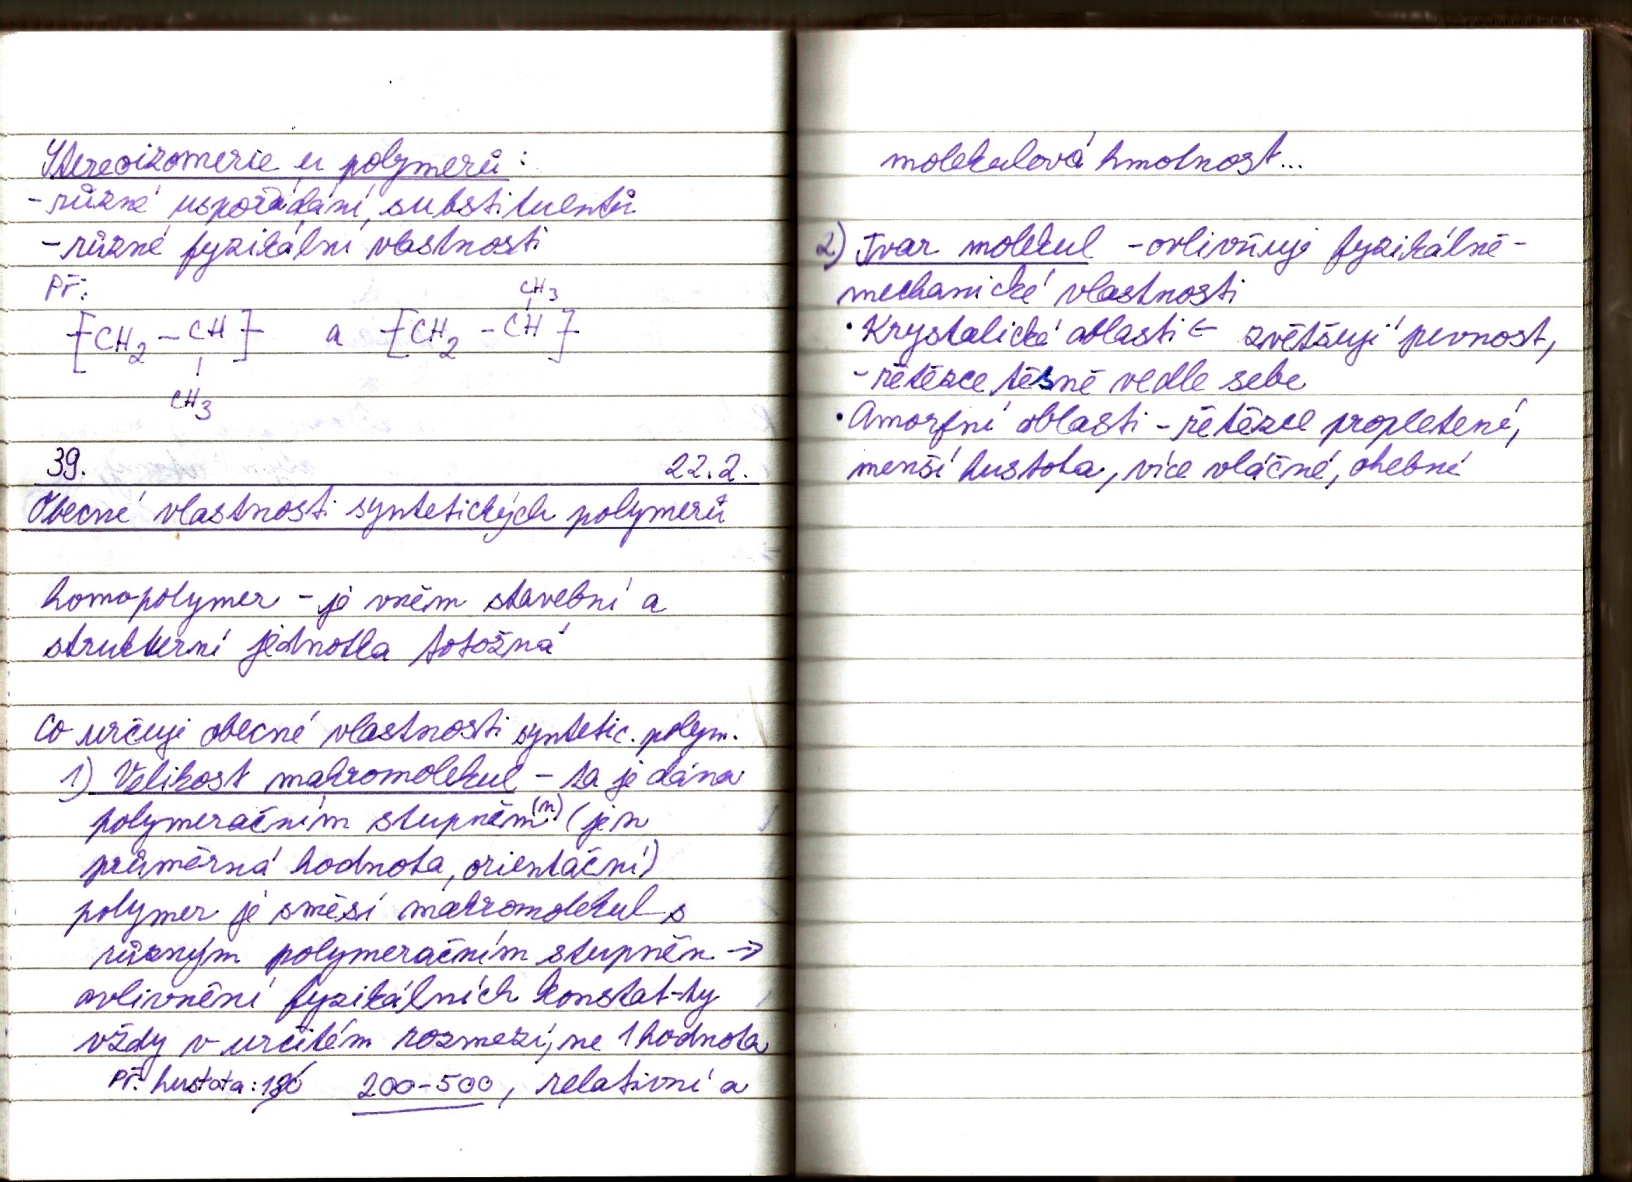 Stereoizomerie u polymerů:
- různé uspořádání, substituentů
- různé fyzikální vlastnosti
Př.:
CH3
[CH2 - CH] a [CH2 - CH]
CH3
39. 22.2.
Obecné vlastnosti syntetických polymerů
homopolymer - je v něm stavební a
strukturní jednotka totožná
Co určuje obecné vlastnosti syntetic. polym.
1) Velikost makromolekul - ta je dána
polymeračním stupněm (n) (je n
průměrná hodnota, orientační)
polymer je směsí makromolekul s
různým polymeračním stupněm →
ovlivnění fyzikálních konstat - ty
vždy v určitém rozmezí, ne 1 hodnota
Př. hustota: 200-500, relativní a
molekulová hmotnost...
2) Tvar molekul - ovlivňuje fyzikálně-
mechanické vlastnosti
• Krystalické oblasti - zvětšují pevnost,
- řetězce těsně vedle sebe
• Amorfní oblasti - řetězce propletené,
menší hustota, více vláčné, ohebné